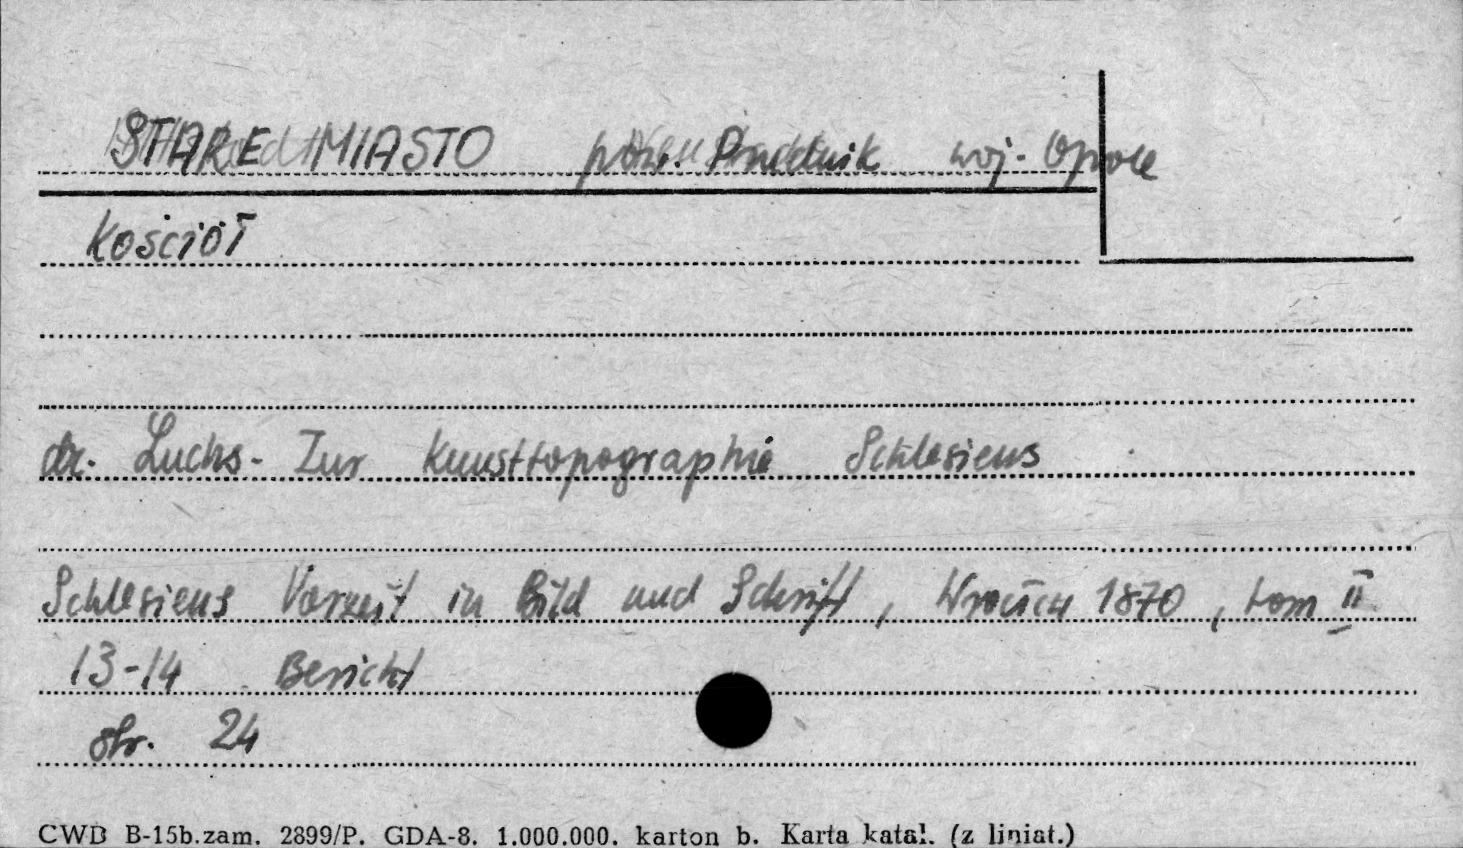 STARE MIASTO pow. Prudnik woj. Opole
Kościół
dr. Luchs - Zur Kunsttopographie Schlesiens
Schlesiens Vorzeit in Bild und Schrift, Wrocław 1870, tom II
13-14 Bericht
str. 24
CWD B-15b.zam. 2899/P. GDA-8. 1.000.000. karton b. Karta katal. (z liniat.)